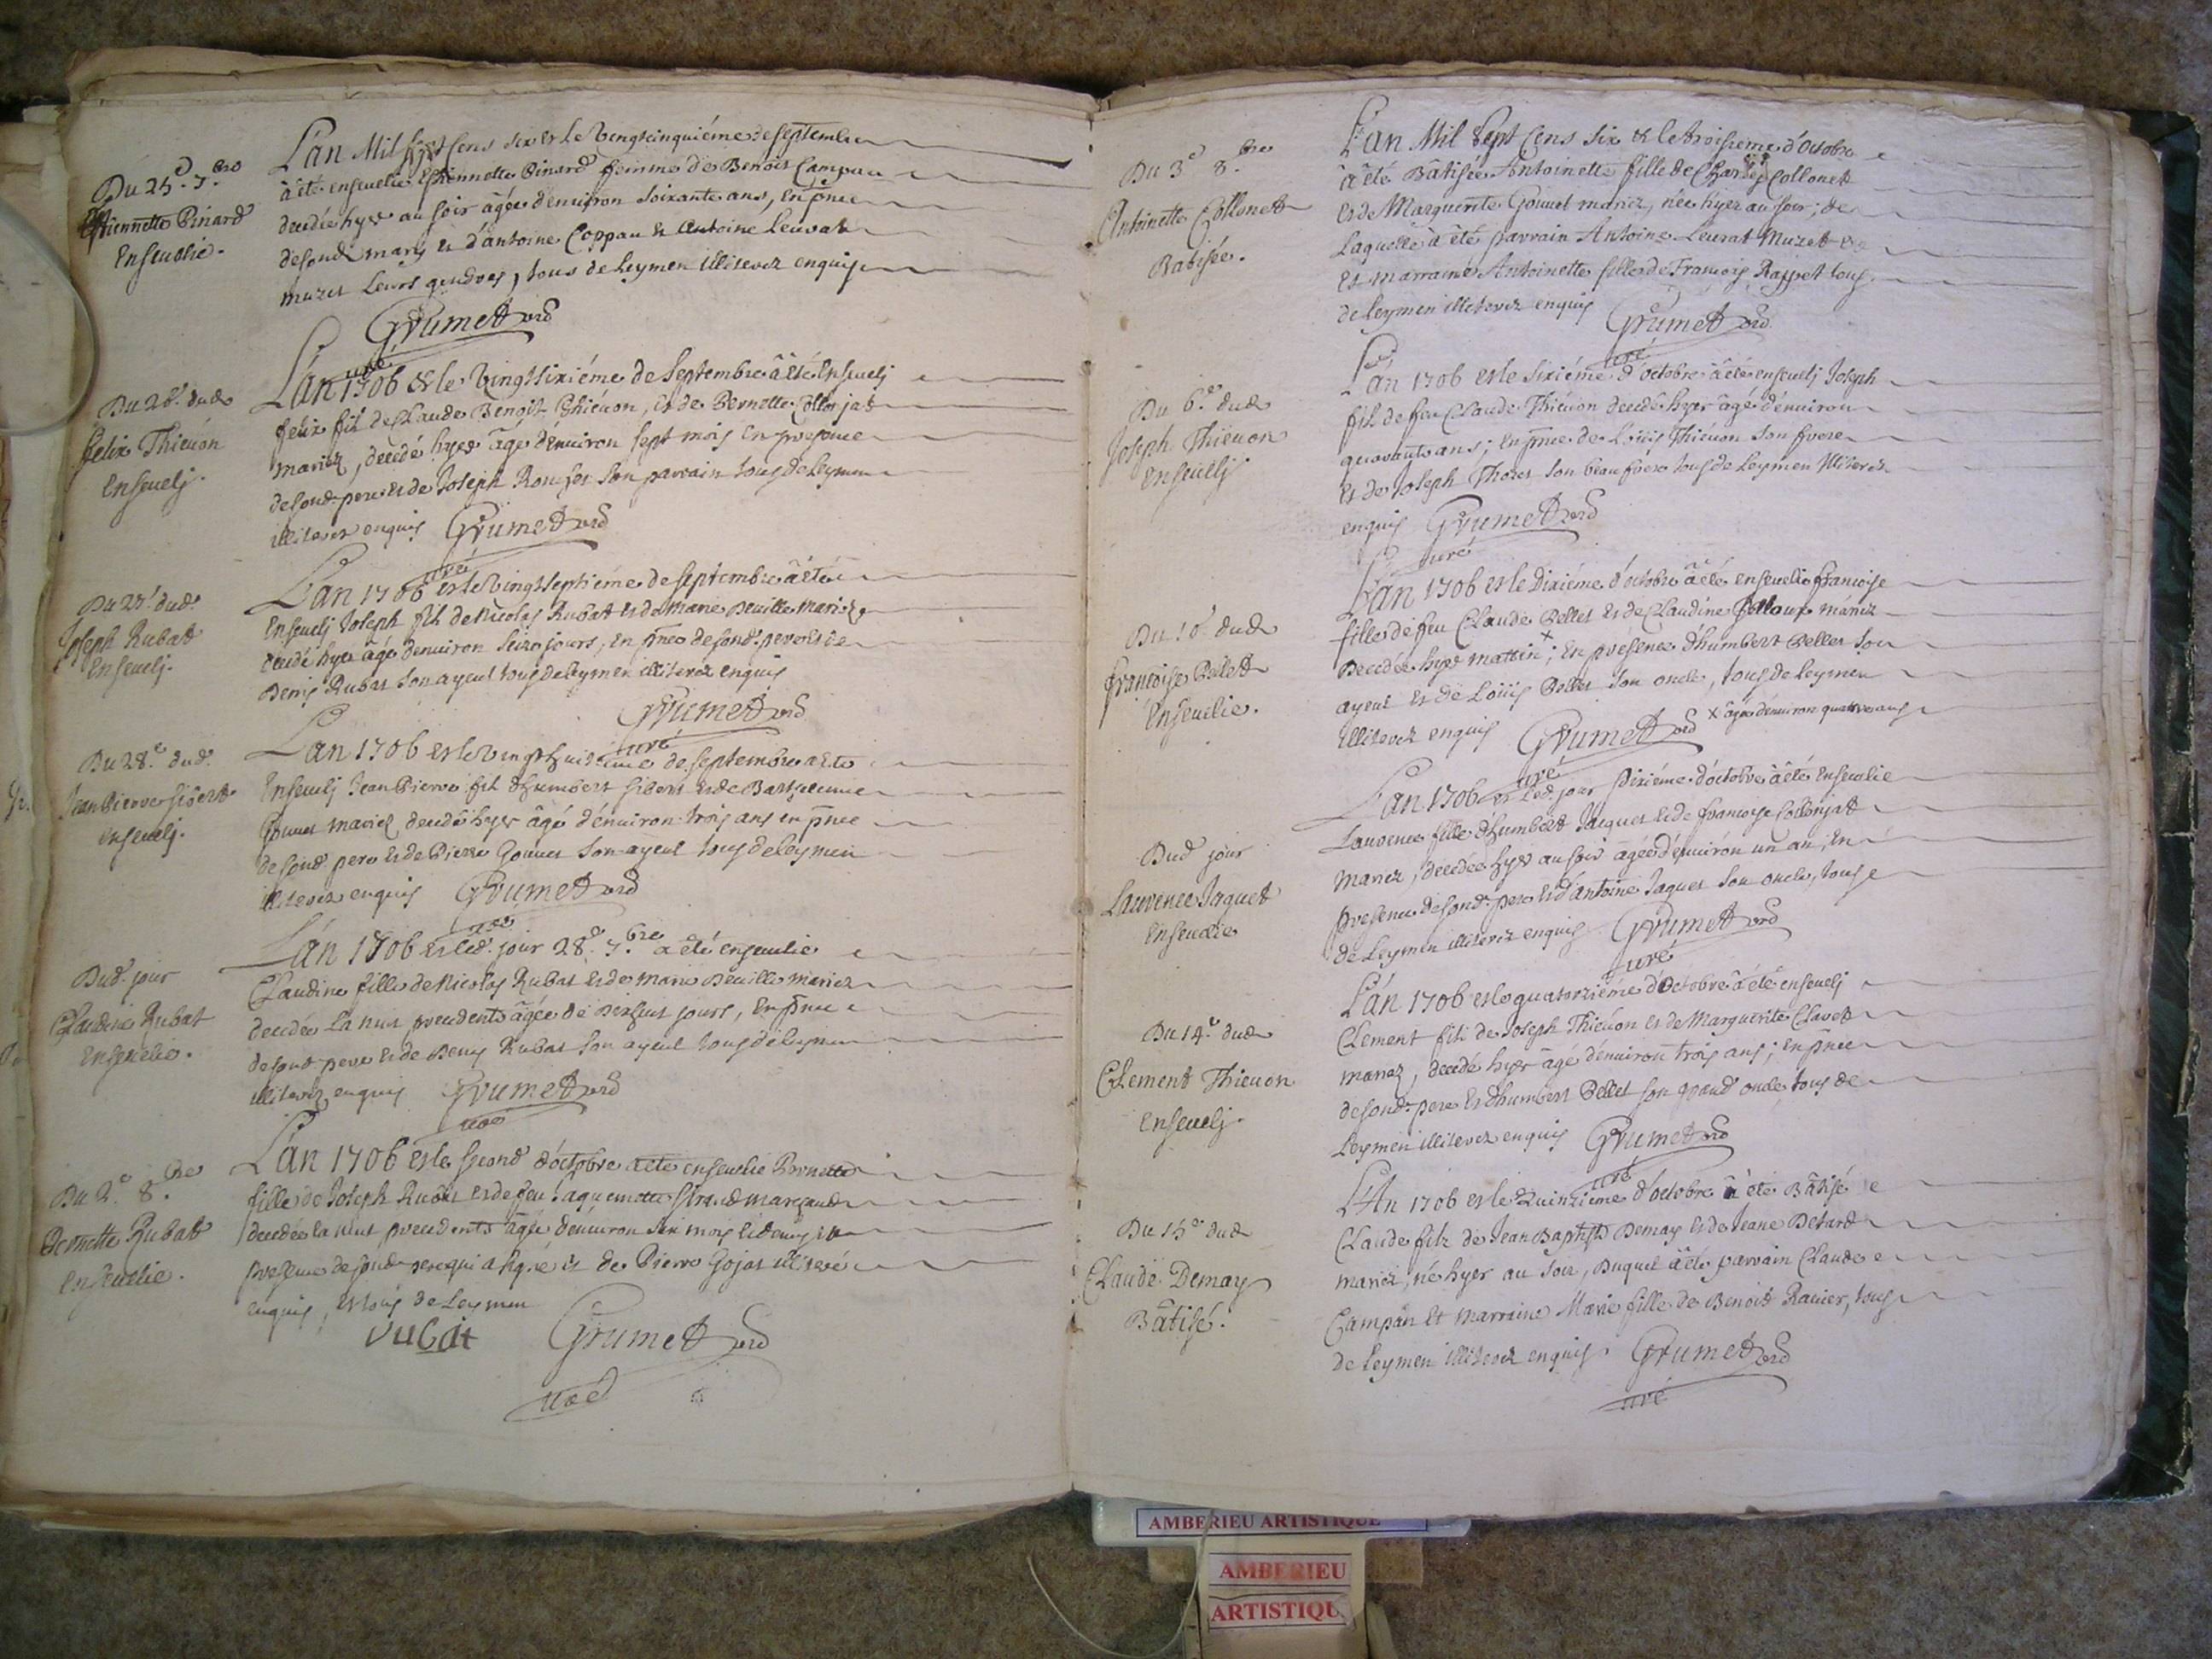 Du 25e 7.bre
Estiennette Pinard
Enseuelie.
L'an Mil Sept Cens six et le Vingtcinquiéme de septembre
à été enseuelie Estiennette Pinard femme de Benoit Campan
decedée hyer au soir âgée d'enuiron soixante ans, en pnce
desond mary et d'antoine Coppau et Antoine Leurat
muzet Leurs gendres, tous de Leymen illiterez enquis
Grumet curé
Du 26e dud
Felix Thieuon
Enseuelj.
L'an 1706 et le Vingtsixiéme de septembre à été Enseuelj
felix filz de Claude Benoist Thieuon, et de Bernette Collonjat
mariez, decedé hyer âgé d'enuiron sept mois en presence
desond pere et de Joseph son parrain tous de Leymen
illiterez enquis Grumet curé
Du 27e dud.
Joseph Rubat
Enseuelj.
L'an 1706 et le Vingtseptiéme de septembre à été
Enseuelj Joseph filz de Nicolas Rubat et de Marie Deuille mariez
decedé hyer âgé denuiron seize jours, en pnce desond. pere et de
Denis Rubat son ayeul tous de Leymen illiterez enquis
Grumet curé
Du 28.e dud.
Jean Pierre Sibert
enseuelj.
L'an 1706 et le Vingt huitiéme de septembre a été
Enseuelj Jean Pierre filz d'humbert Sibert et de
Gouuet mariez decedé hyer âgé d'énuiron trois ans en pnce
desond. pere et de Pierre Gouuet son ayeul tous de Leymen
illiterez enquis Grumet curé
Dud. jour
Claudine Rubat
Enseuelie.
L'an 1706 et led. jour 28.e 7.bre a été enseuelie
Claudine fille de Nicolas Rubat et de Marie Deuille mariez
decedée La nuit precedente âgée de dixhuit jours, en pnce
desond pere et de Denis Rubat son ayeul tous de Leymen
illiterez enquis Grumet curé
Du 2.e 8.bre
Bernette Rubat
Enseuelie.
L'an 1706 et le second d'octobre a été enseuelie Bernette
fille de Joseph Rubat et de feu Jaquemette marchand
decedée la nuit precedente âgée d'enuiron six mois et demy en
presence desond. pere qui a signé et de Pierre Gojat illiteré
enquis, et tous de Leymen
rubat Grumet curé
Du 3e 8.bre
Antoinette Collonet
Batisée.
L'an Mil Sept Cens Six et le troisieme d'Octobre
à été Bâtisée Antoinette fille de Charles Collonet
et de Marguerite Gouuet mariez, née hyer au soir; de
Laquelle à été parrain Antoine Leurat Muzet
Et marraine Antoinette fille de François Rappet tous
de Leymen illiterez enquis Grumet curé
Du 6.e dud
Joseph Thieuon
enseuelj
L'an 1706 et le sixiéme d'octobre à été enseuelj Joseph
filz de feu Claude Thieuon decedé hyer âgé d'énuiron
quarante ans; En pnce de Loüis Thieuon son frere
Et de Joseph Thoret son beaufrere tous de Leymen illiterez
enquis Grumet curé
Du 10 dud
Françoise Pellet
Enseuelie.
L'an 1706 et le Dixiéme d'octobre à été enseuelie françoise
fille de feu Claude Pellet et de Claudine mariez
Decedée hyer mattin x; En presence d'humbert Pellet son
ayeul et de Loüis Pellet son oncle, tous de Leymen
illiterez enquis Grumet curé x âgée d'enuiron quatre ans
Dud jour
Laurence Jaquet
enseuelie
L'an 1706 et led. jour Dixiéme d'octobre à été Enseuelie
Laurence fille d'humbert Jacquet et de françoise Collonjat
mariez, decedée hyer au soir âgée d'enuirón un an; En
presence desond. pere et d'antoine Jaquet son oncle, tous
de Leymen illiterez enquis Grumet curé
Du 14.e dud
Clement Thieuon
enseuelj.
L'an 1706 et le quatorziéme d'octobre à été enseuelj
Clement filz de Joseph Thieuon et de Marguerite Clauet
mariez, decedé hyer âgé d'énuiron trois ans; en pnce
desond. pere Et d'humbert Pellet son grand oncle, tous de
Leymen illiterez enquis Grumet curé
Du 15e dud
Claude Demay
Bâtisé.
L'An 1706 et le Quinziéme d'octobre à été Bâtisé
Claude filz de Jean Baptiste Demay et de Jeane Betard
mariez, né hyer au soir, Duquel à été parrain Claude
Campan Et marraine Marie fille de Benoit Rauier, tous
de Leymen illiterez enquis Grumet curé
AMBERIEU ARTISTIQUE
AMBERIEU
ARTISTIQU